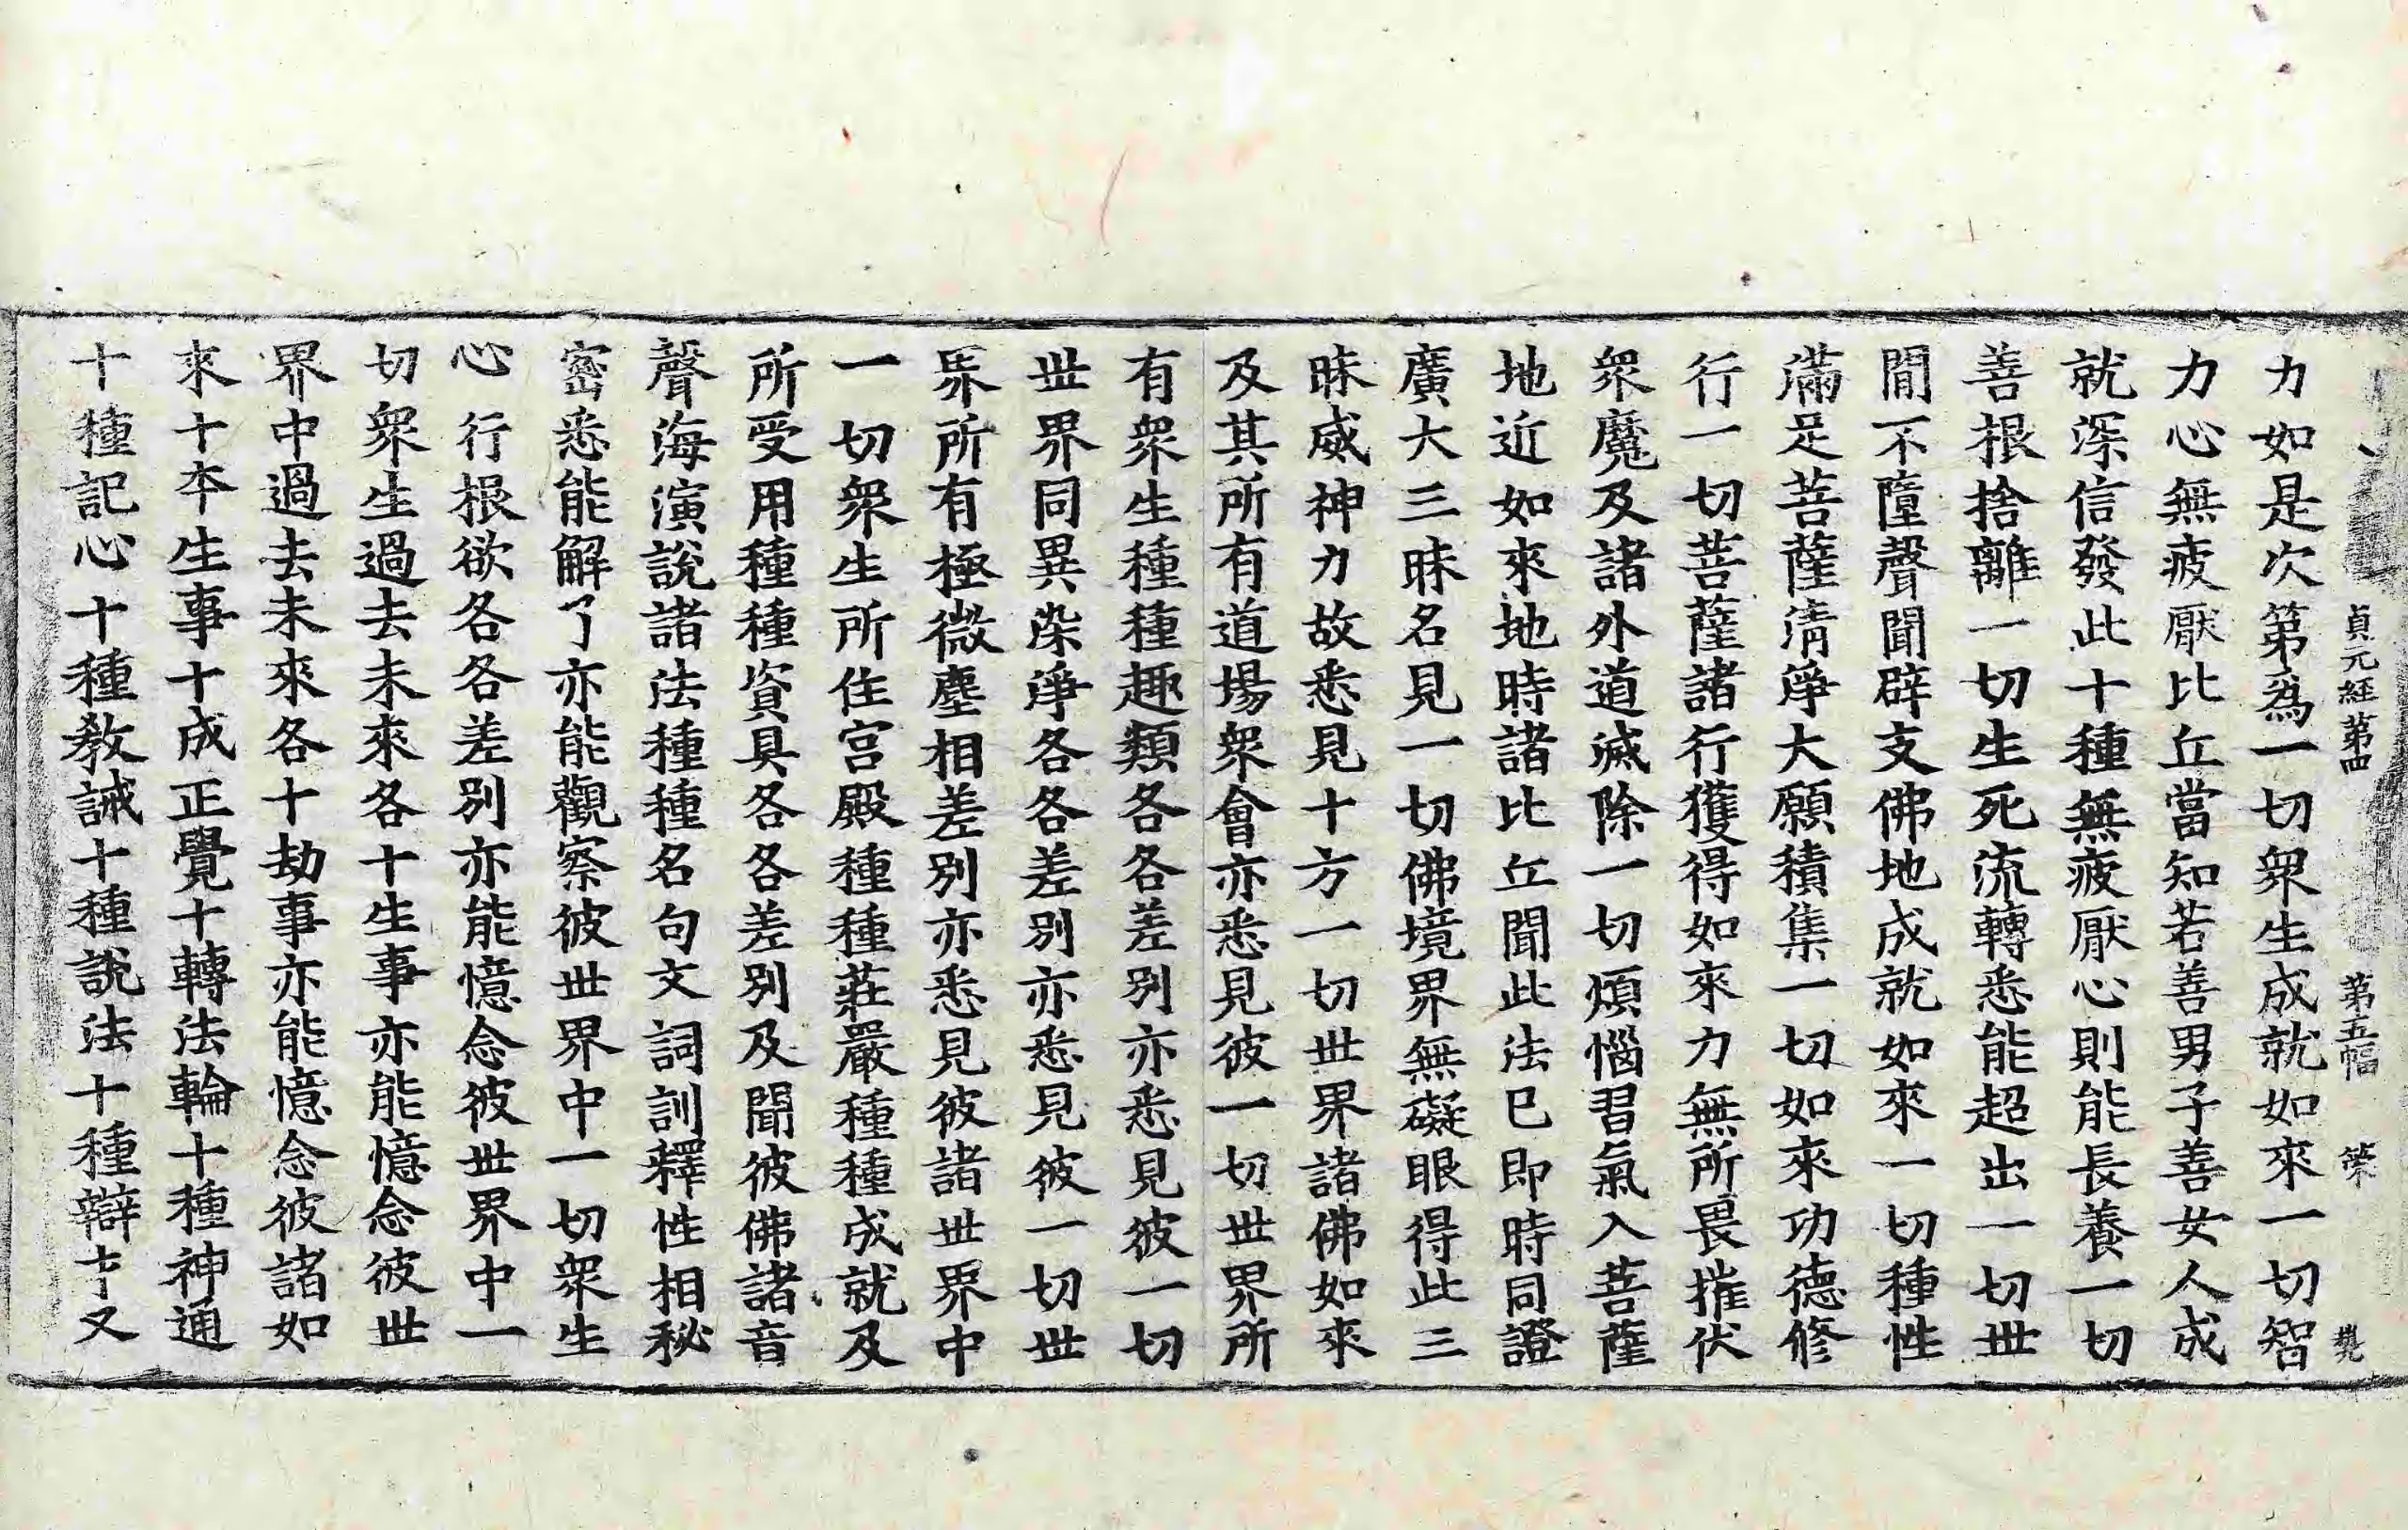 貞元經第四 第五幅 榮
力如是次第為一切衆生成就如來一切智
力心無疲厭比丘當知若善男子善女人成
就深信發此十種無疲厭心則能長養一切
善根捨離一切生死流轉悉能超出一切世
間不墮聲聞辟支佛地成就如來一切種性
滿足菩薩清淨大願積集一切如來功德修
行一切菩薩諸行獲得如來力無所畏摧伏
衆魔及諸外道滅除一切煩惱習氣入菩薩
地近如來地時諸比丘聞此法已即時同證
廣大三昧名見一切佛境界無礙眼得此三
昧威神力故悉見十方一切世界諸佛如來
及其所有道場衆會亦悉見彼一切世界所
有衆生種種趣類各各差別亦悉見彼一切
世界同異染淨各各差別亦悉見彼一切世
界所有極微塵相差別亦悉見彼諸世界中
一切衆生所住宮殿種種莊嚴種種成就及
所受用種種資具各各差別及聞彼佛諸音
聲海演說諸法種種名句文詞訓釋性相秘
密悉能解了亦能觀察彼世界中一切衆生
心行根欲各各差別亦能憶念彼世界中一
切衆生過去未來各十生事亦能憶念彼世
界中過去未來各十劫事亦能憶念彼諸如
來十本生事十成正覺十轉法輪十種神通
十種記心十種教誡十種說法十種辯才又